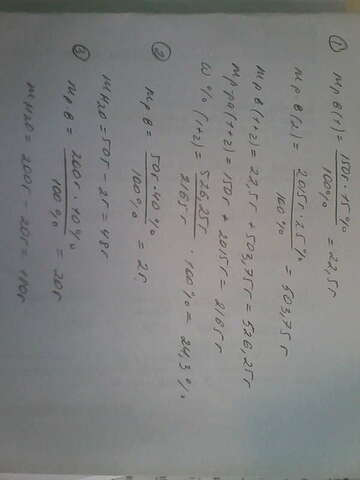 ① mр.в (1) = 150г · 15% / 100% = 22,5г
mр.в (2) = 2015г · 25% / 100% = 503,75г
mр.в (1+2) = 22,5г + 503,75г = 526,25г
mр-ра (1+2) = 150г + 2015г = 2165г
ω% (1+2) = 526,25г / 2165г · 100% = 24,3%
② mр.в = 50г · 40% / 100% = 2г
mH2O = 50г - 2г = 48г
③ mр.в = 200г · 10% / 100% = 20г
mH2O = 200г - 20г = 180г